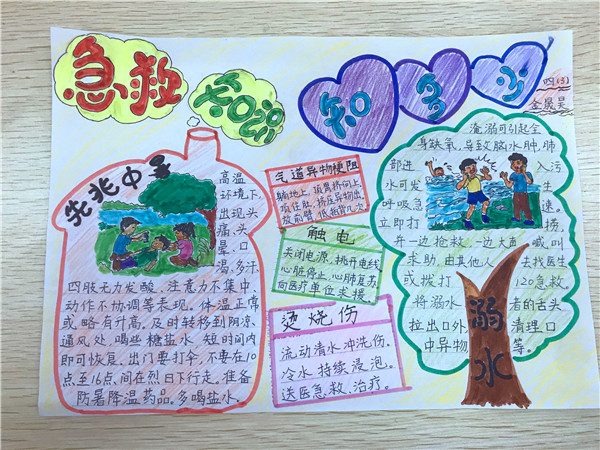 急救
知识
知多少
四(3)
金晟昊
先兆中暑
高温
环境下
出现头
痛、头
晕、口
渴、多汗、
四肢无力发酸，注意力不集中，
动作不协调等表现。体温正常
或略有升高，及时转移到阴凉
通风处，喝些糖盐水，短时间内
即可恢复。出门要打伞，不要在10
点至16点间在烈日下行走。准备
防暑降温药品。多喝盐水。
气道异物梗阻
躺地上，顶胃挤向上，
触电
关闭电源，挑开电线，
心脏停止，心肺复苏，
向医疗单位求援。
烫烧伤
流动清水冲洗伤，
冷水持续浸泡。
送医急救，治疗。
淹溺可引起全
身缺氧，导致脑水肿，肺
部进入污
水可发生
呼吸急速。
立即打捞，
并一边抢救，一边大声喊叫
求助，由其他人去找医生
或拨打120急救。
将溺水者的舌头
拉出口外，清理口
中异物等。
溺水